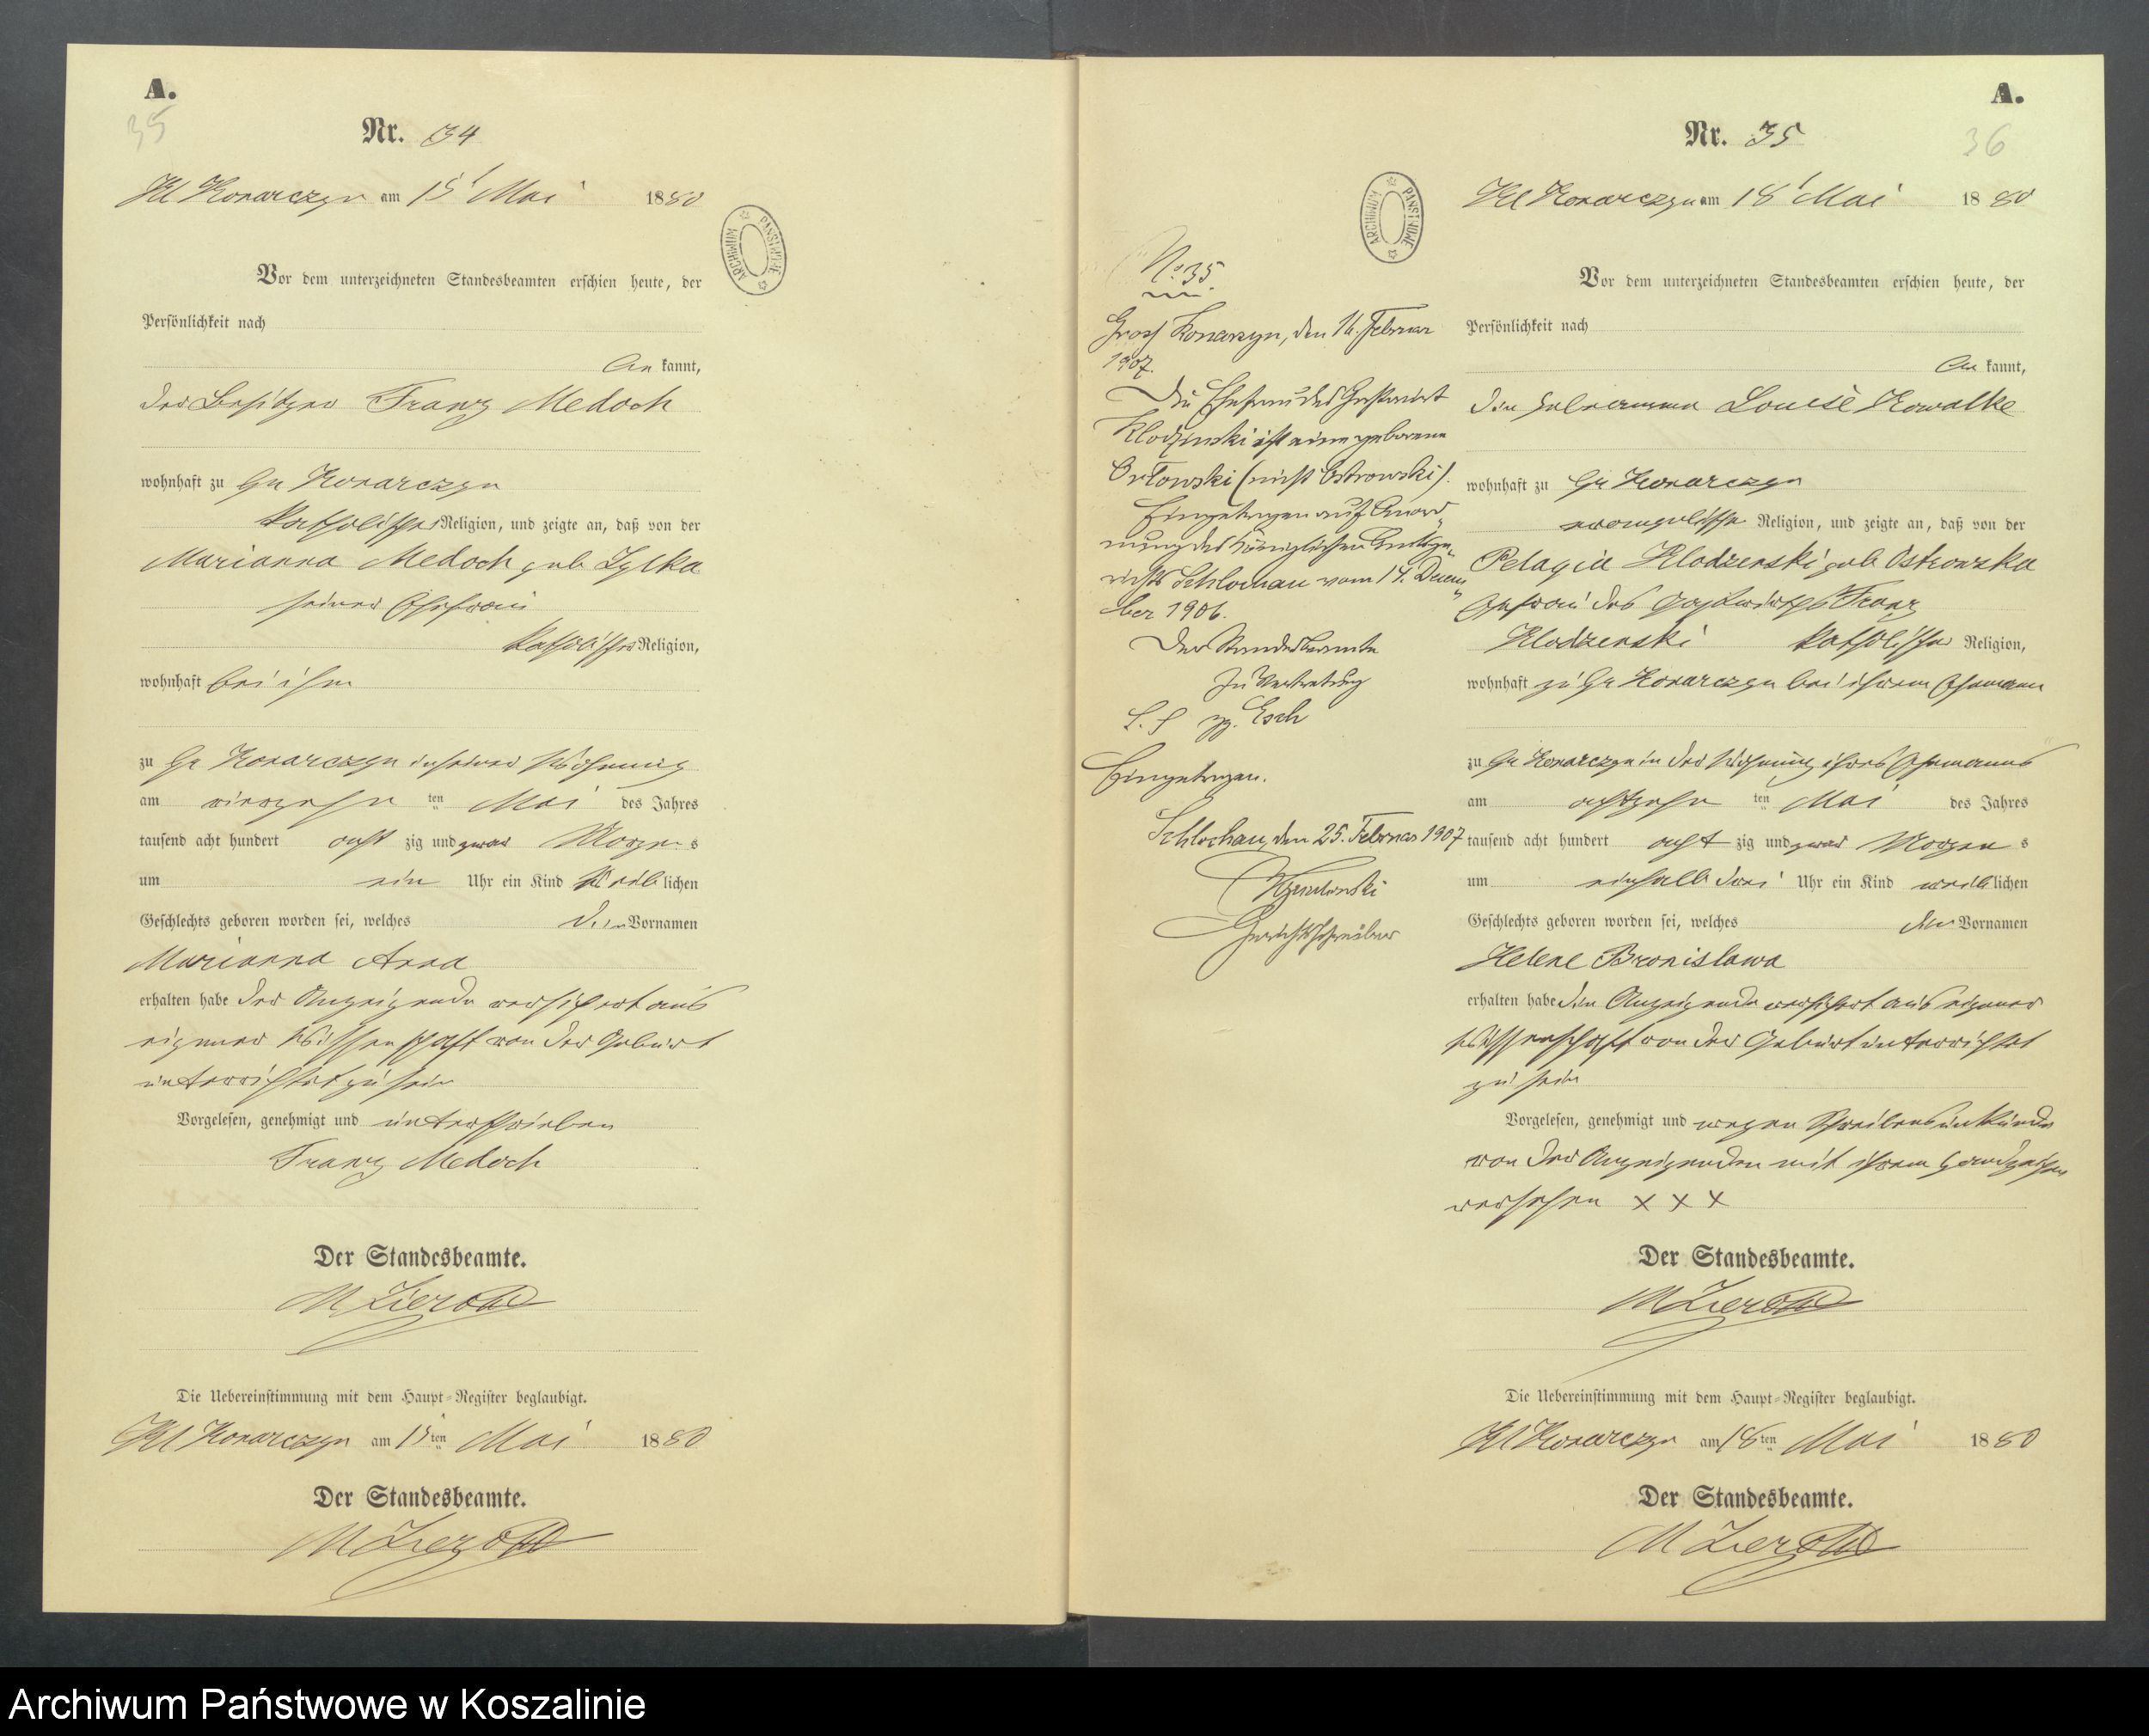 A.
35
Nr. 34
Kl Konarczyn am 15t Mai 1880
ARCHIWUM PAŃSTWOWE
Vor dem unterzeichneten Standesbeamten erschien heute, der
Persönlichkeit nach
be kannt,
der Besitzer Franz Medoch
wohnhaft zu Gr Konarczyn
katholischer Religion, und zeigte an, daß von der
Marianna Medoch geb Zylka
seiner Ehefrau
katholischer Religion,
wohnhaft bei ihm
zu Gr Konarczyn in seiner Wohnung
am vierzehn ten Mai des Jahres
tausend acht hundert acht zig und zwar Morgens
um ein Uhr ein Kind weiblichen
Geschlechts geboren worden sei, welches den Vornamen
Marianna Anna
erhalten habe der Anzeigende versichert aus
eigener Wissenschaft von der Geburt
unterrichtet zu sein
Vorgelesen, genehmigt und unterschrieben
Franz Medoch
Der Standesbeamte.
M Zierold
Die Uebereinstimmung mit dem Haupt-Register beglaubigt.
Kl Konarczyn am 15ten Mai 1880
Der Standesbeamte.
M Zierold
A.
36
Nr. 35
Kl Konarczyn am 18t Mai 1880
ARCHIWUM PAŃSTWOWE
Vor dem unterzeichneten Standesbeamten erschien heute, der
Persönlichkeit nach
be kannt,
die Hebeamme Louise Kowalke
wohnhaft zu Gr Konarczyn
evangelischer Religion, und zeigte an, daß von der
Pelagia Klodzenski geb Ostrowska
Ehefrau des Gastwirths Franz
Klodzenski katholischer Religion,
wohnhaft zu Gr Konarczyn bei ihrem Ehemann
zu Gr Konarczyn in der Wohnung ihres Ehemanns
am achtzehn ten Mai des Jahres
tausend acht hundert acht zig und zwar Morgens
um einhalb drei Uhr ein Kind weiblichen
Geschlechts geboren worden sei, welches den Vornamen
Helene Bronislawa
erhalten habe die Anzeigende versichert aus eigener
Wissenschaft von der Geburt unterrichtet
zu sein
Vorgelesen, genehmigt und wegen Schreibensunkunde
von der Anzeigenden mit ihrem Handzeichen
versehen x x x
Der Standesbeamte.
M Zierold
Die Uebereinstimmung mit dem Haupt-Register beglaubigt.
Kl Konarczyn am 18ten Mai 1880
Der Standesbeamte.
M Zierold
No. 35.
Gross Konarzyn, den 16. Februar
1907.
Die Ehefrau des Gastwirt
Klodzinski ist eine geborene
Orlowski (nicht Ostrowski).
Eingetragen auf Anord-
nung des Königlichen Amtsge-
richts Schlochau vom 14. Dezem-
ber 1906.
Der Standesbeamte
In Vertretung
L. S gz. Esch
Eingetragen.
Schlochau, den 25. Februar 1907
Gerichtsschreiber
Archiwum Państwowe w Koszalinie